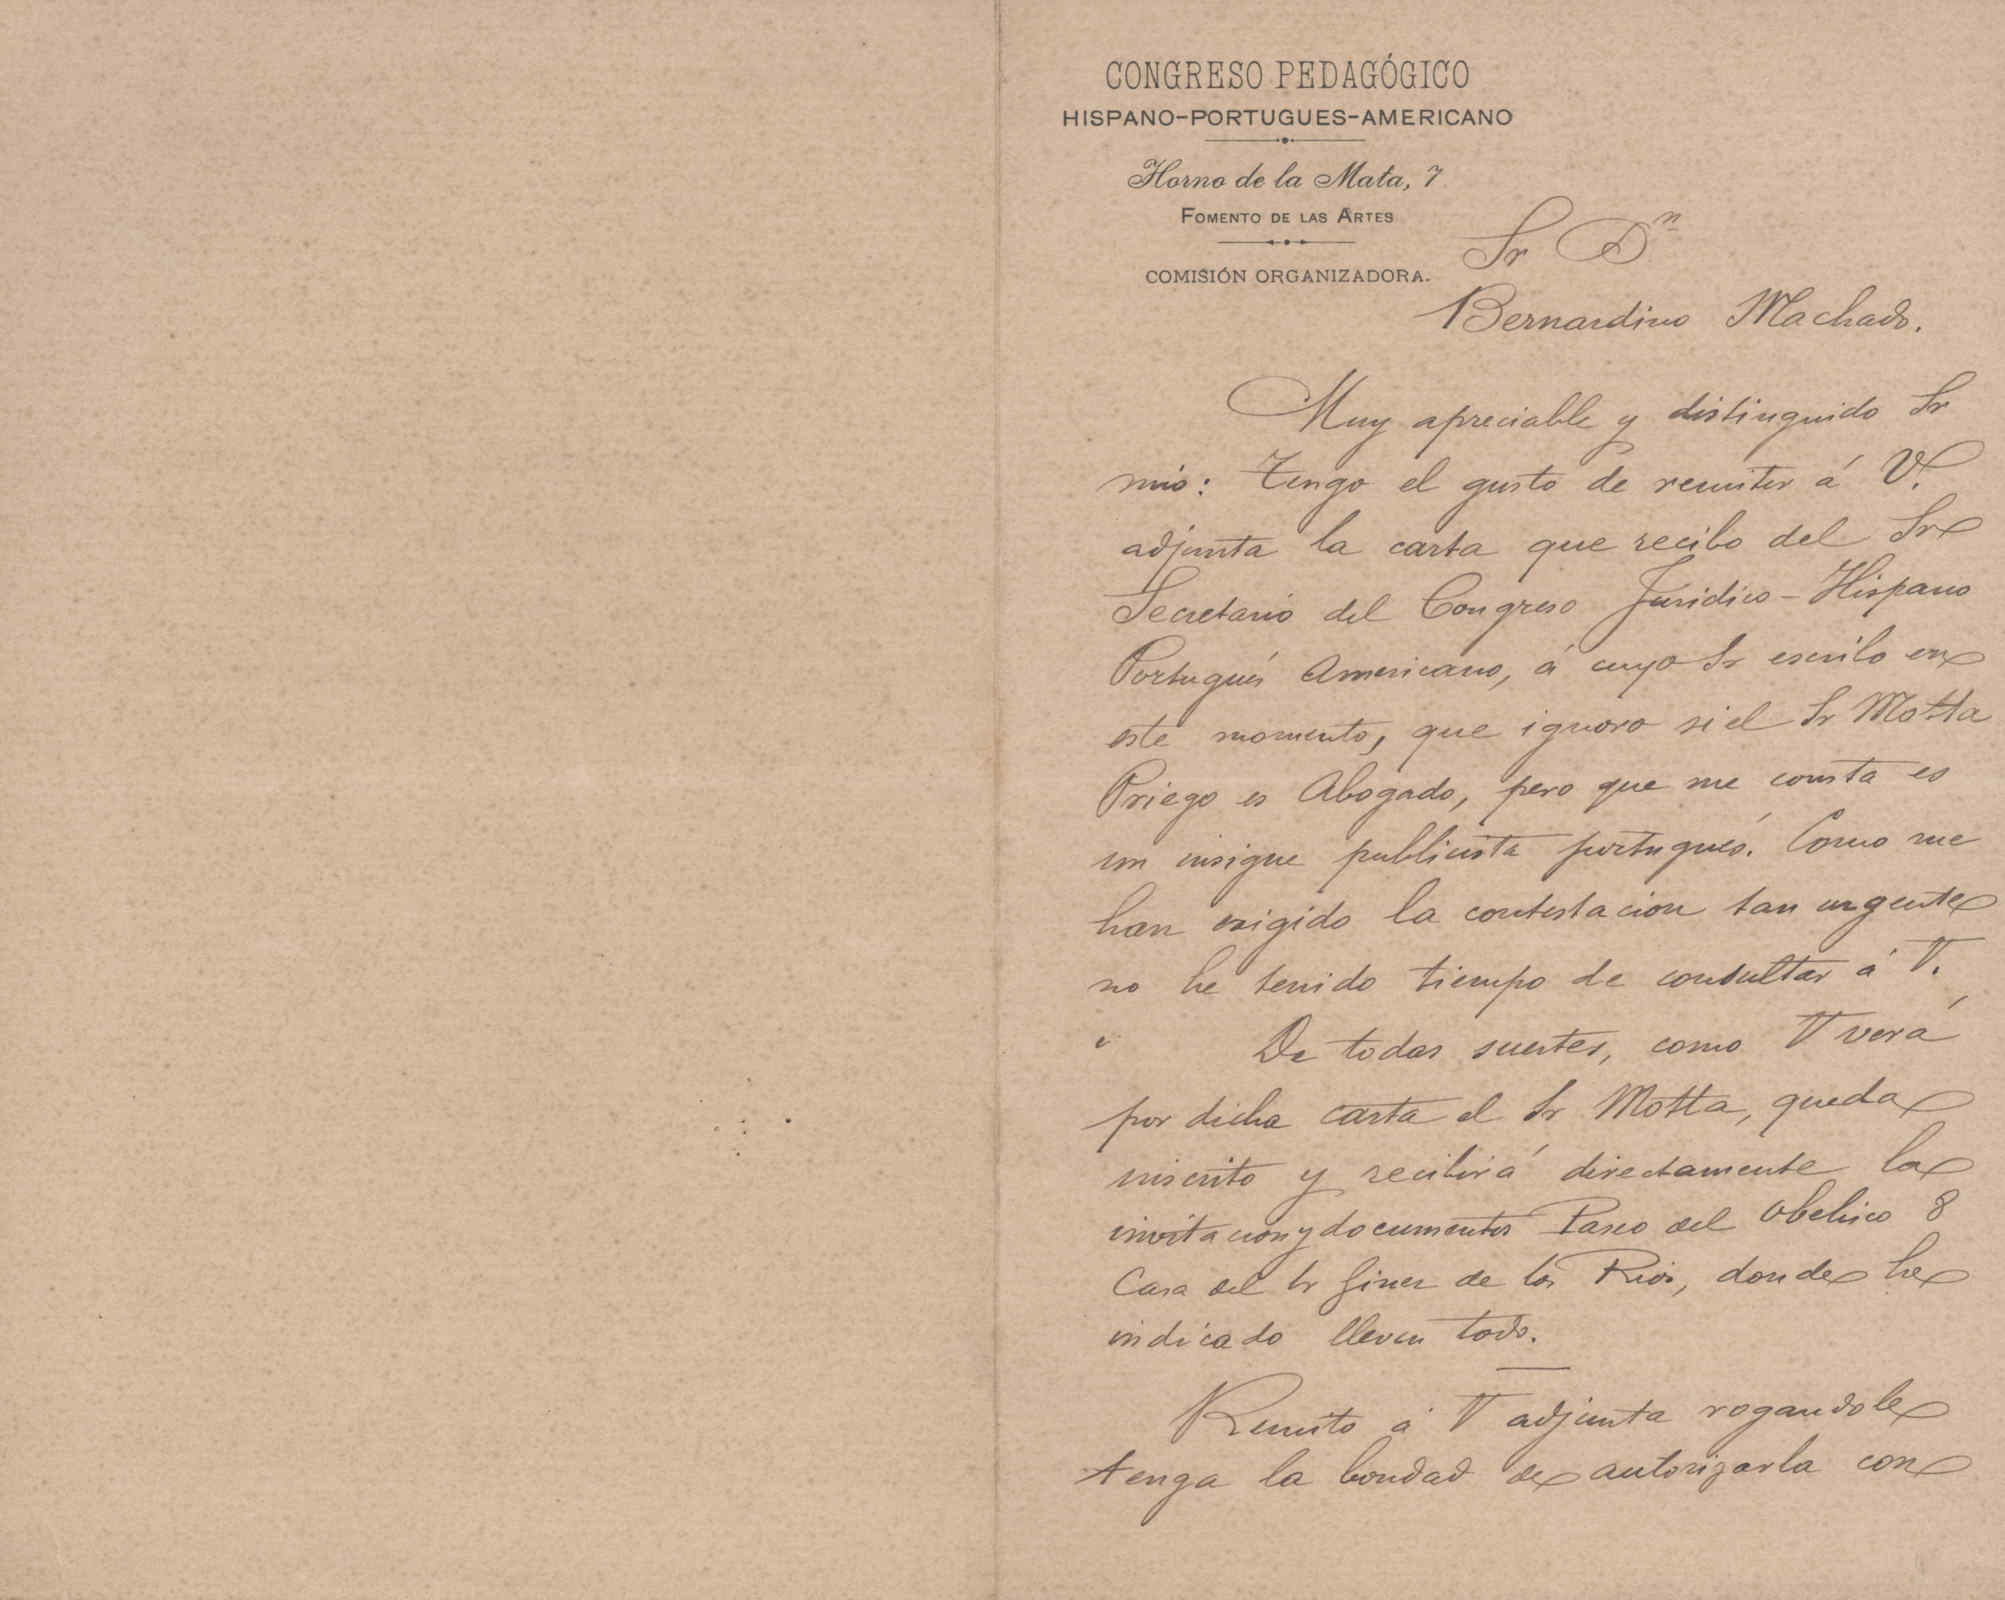 CONGRESO PEDAGÓGICO
HISPANO-PORTUGUES-AMERICANO
Horno de la Mata, 7
FOMENTO DE LAS ARTES
COMISIÓN ORGANIZADORA.
Sr Dn
Bernardino Machado.
Muy apreciable y distinguido Sr
mio: Tengo el gusto de remitir á V.
adjunta la carta que recibo del Sr
Secretario del Congreso Juridico-Hispano
Portugués Americano, á cuyo Sr escribo en
este momento, que ignoro si el Sr Motta
Priego es Abogado, pero que me consta es
un insigne publicista portugués. Como me
han exigido la contestacion tan urgente
no he tenido tiempo de consultar á V.
De todas suertes, como V verá
por dicha carta el Sr Motta, queda
inscrito y recibirá directamente la
invitacion y documentos Paseo del Obelisco 8
Casa del Sr Giner de los Rios, donde he
indicado lleven todo.
Remito á V adjunta rogandole
tenga la bondad de autorizarla con